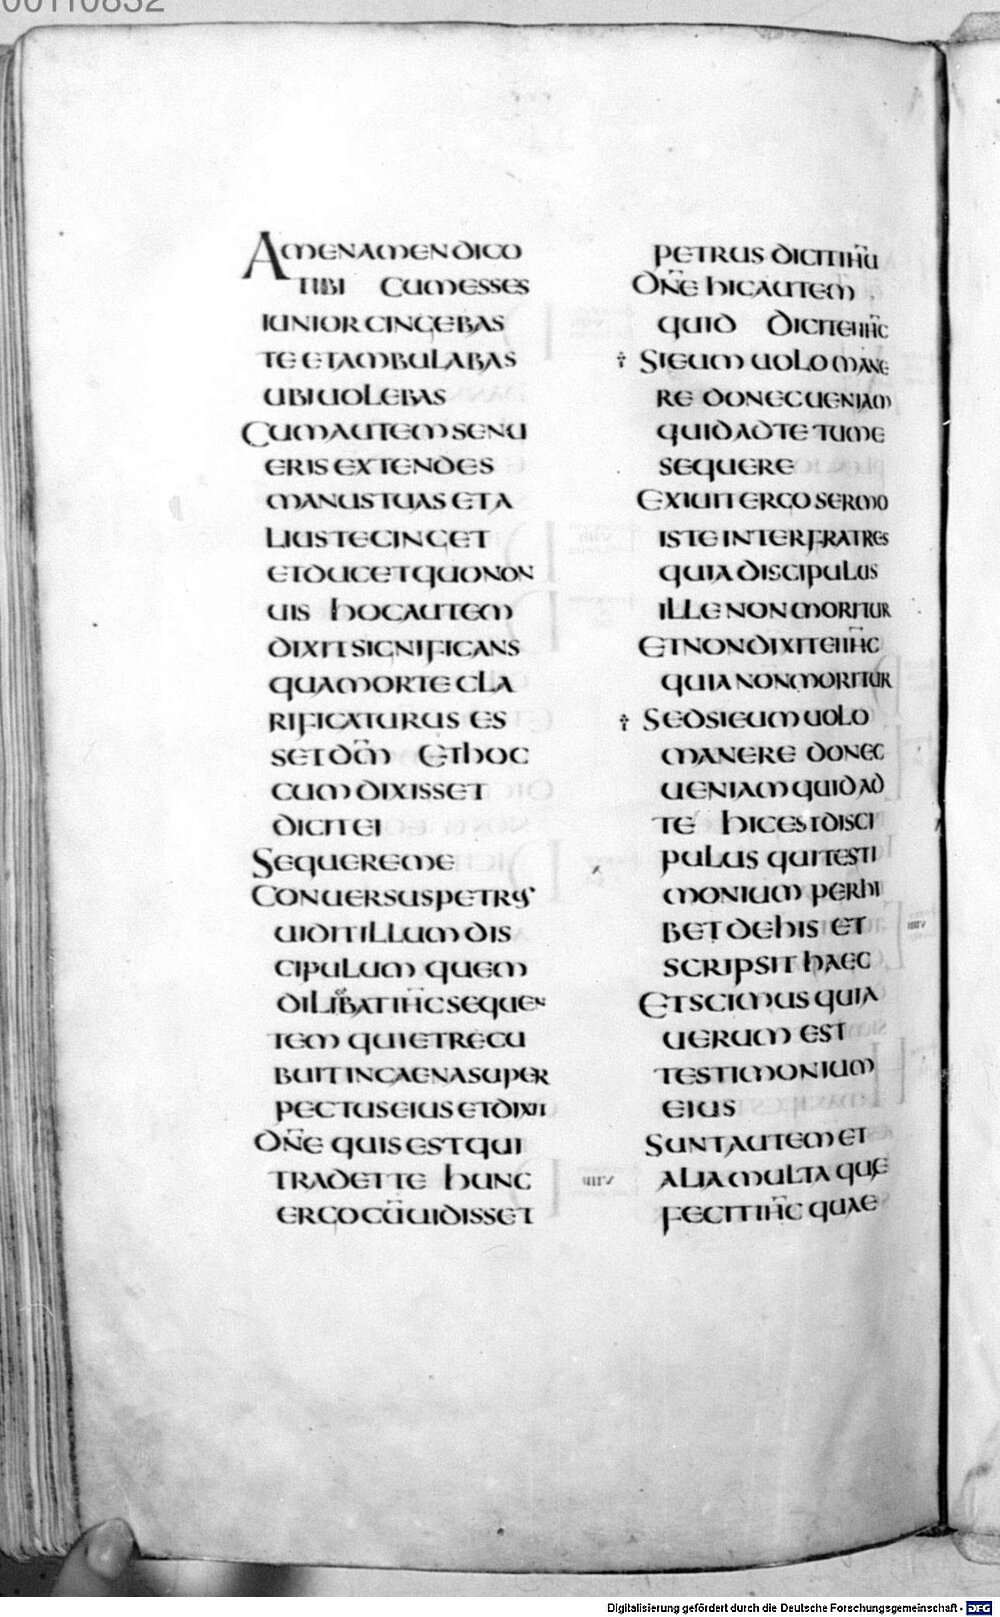 00110832
AMENAMENDICO
TIBI CUMESSES
IUNIORCINGEBAS
TEETAMBULABAS
UBIUOLEBAS
CUMAUTEMSENU
ERISEXTENDES
MANUSTUASETA
LIUSTECINGET
ETDUCETQUONON
UIS HOCAUTEM
DIXITSIGNIFICANS
QUAMORTECLA
RIFICATURUS ES
SETDM̄ ETHOC
CUMDIXISSET
DICITEI
SEQUEREME
CONUERSUSPETRUS
UIDITILLUMDIS
CIPULUM QUEM
DILIGEBATIHC̄SEQUEN
TEM QUIETRECU
BUITINCAENASUPER
PECTUSEIUSETDIXIT
DN̄E QUISESTQUI
TRADETTE HUNC
ERGOCŪUIDISSET
PETRUSDICITIHŪ
DN̄E HICAUTEM
QUID DICITEIIHC̄
† SIEUMUOLOMANE
RE DONECUENIAM
QUIDADTETUME
SEQUERE
EXIUITERGOSERMO
ISTEINTERFRATRES
QUIADISCIPULUS
ILLENONMORITUR
ETNONDIXITEIIHC̄
QUIANONMORITUR
† SEDSIEUMUOLO
MANERE DONEC
UENIAMQUIDAD
TE HICESTDISCI
PULUS QUITESTI
MONIUM PERHI
BETDEHIS ET
SCRIPSIT HAEC
ETSCIMUSQUIA
UERUM EST
TESTIMONIUM
EIUS
SUNTAUTEMET
ALIAMULTA QUE
FECITIHC̄ QUAE
Digitalisierung gefördert durch die Deutsche Forschungsgemeinschaft - DFG